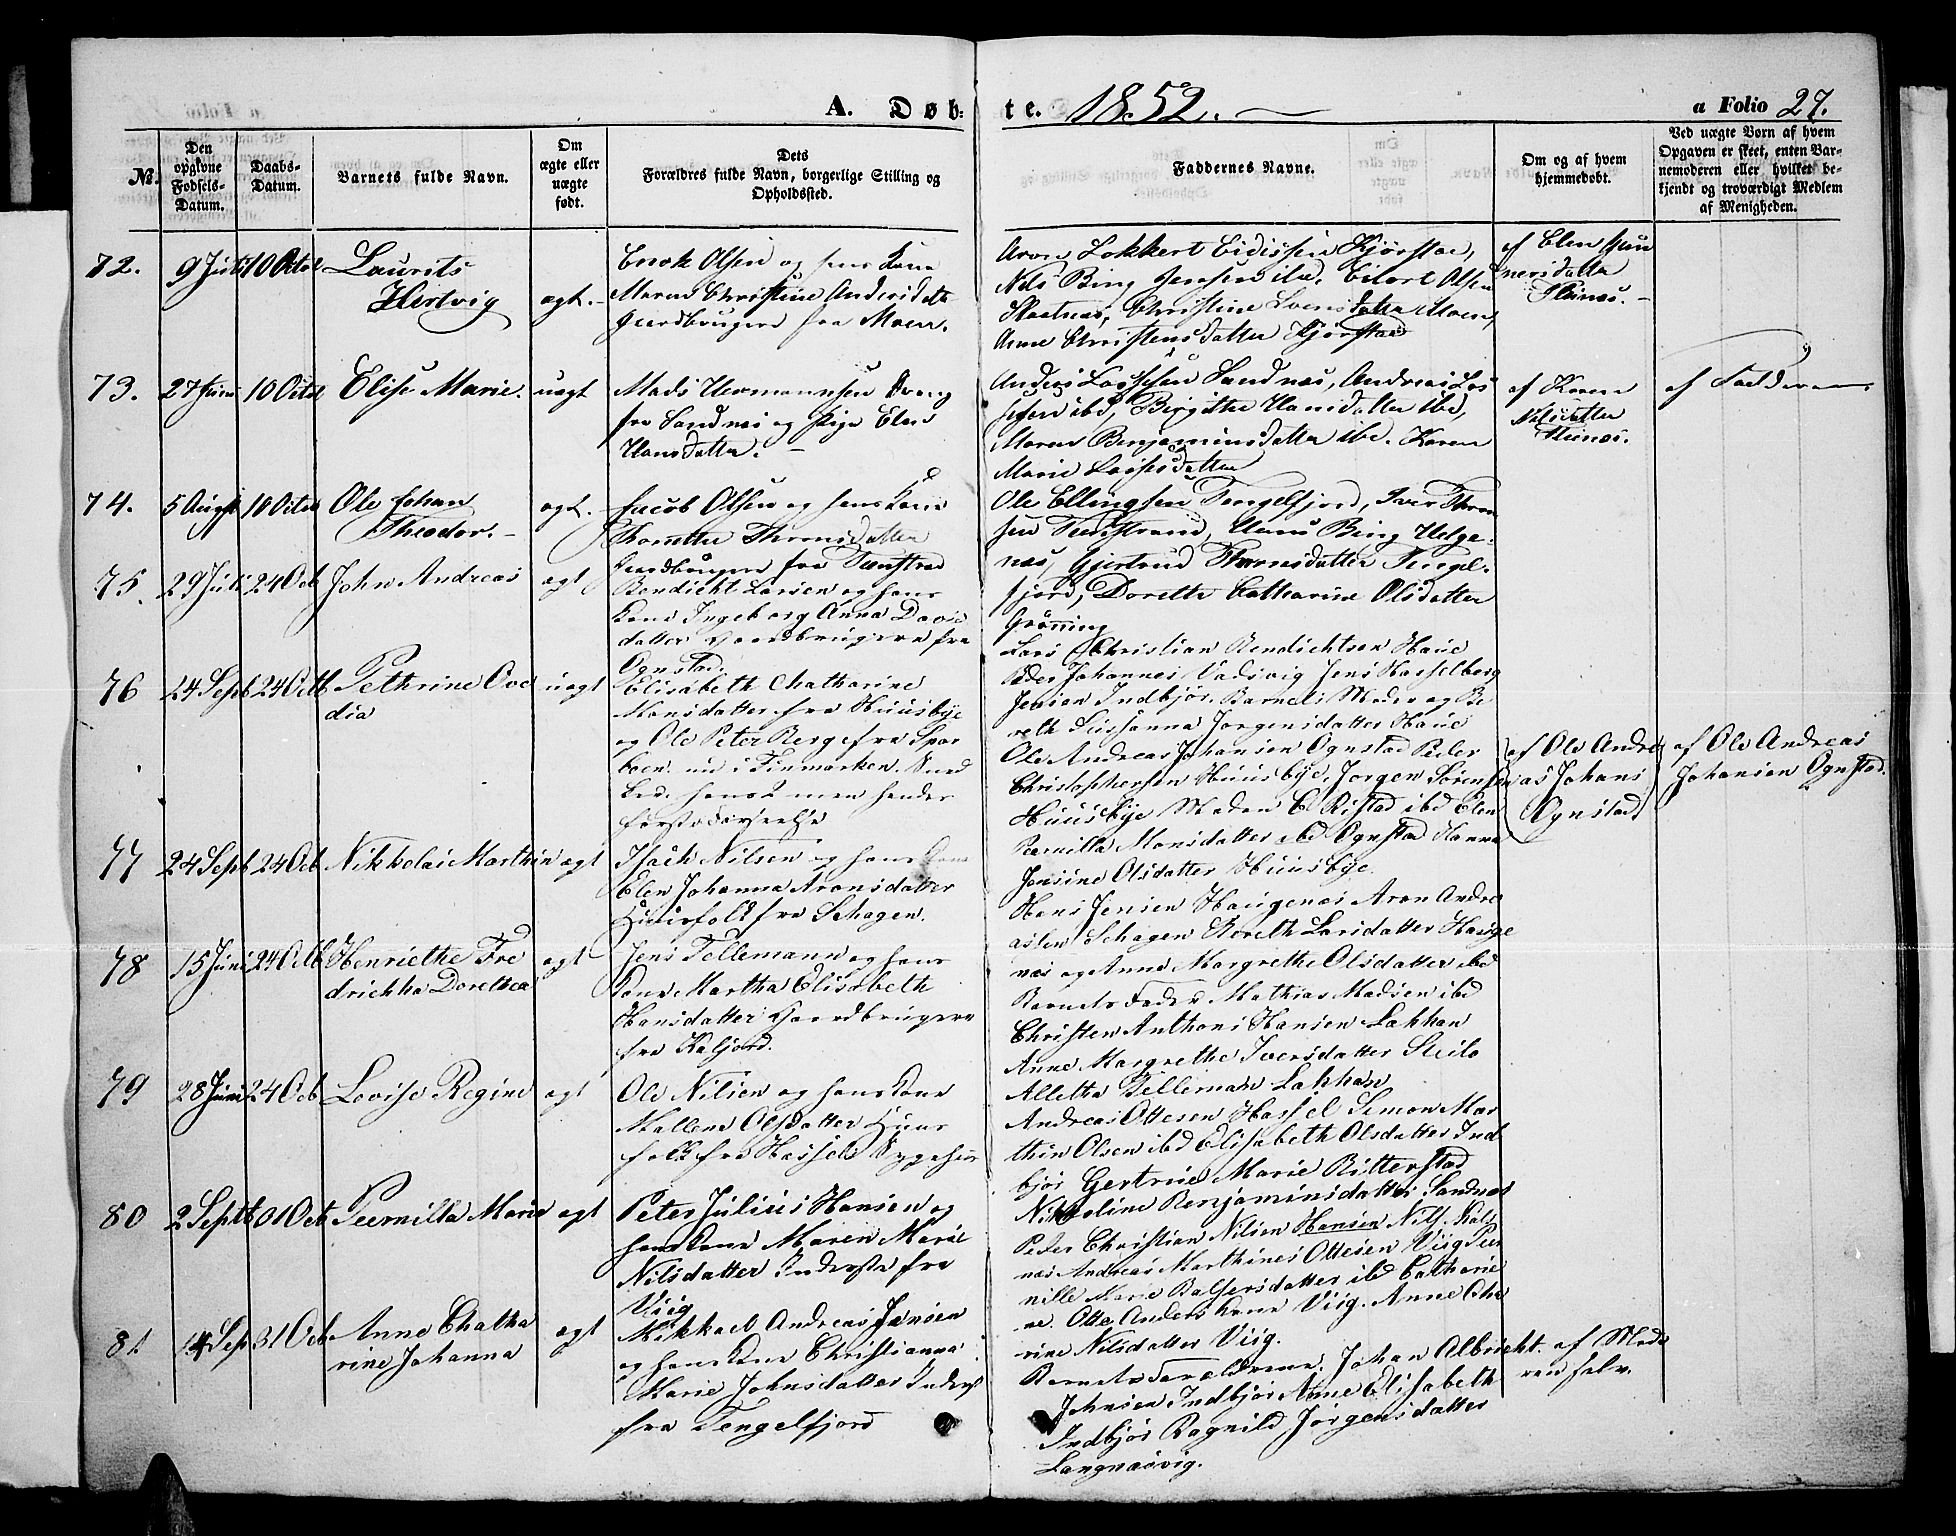 A. Døb- te. 1852. a Folio 27.
No.
Den opgivne Fødsels-Datum.
Daabs-Datum.
Barnets fulde Navn.
Om ægte eller uægte født.
Dets Forældres fulde Navn, borgerlige Stilling og Opholdssted.
Faddernes Navne.
Om og af hvem hjemmedøbt.
Ved uægte Børn af hvem Opgaven er skeet, enten Barnemoderen eller hvilket bekjendt og troværdigt Medlem af Menigheden.
72. 9 Juli 10 Octol Laurits
Hertvig ægt.
Enok Olsen og hans Kone
Maren Christine Andersdatte
Gaardbrugere fra Moen.
Aron Lokkert Eidissen Kjørstad,
Nels Bing Jensen ibd, Eilert Olsen
Skotnæs, Christine Svensdatter Moen,
Anne Christensdatter Kjørstad
af Elen Gun
nersdatter
Steinæs.
73. 27 Juni 10 Octol Elise Marie. uægt
Mads Hermannsen Dreng
fra Sandnæs og Pige Elen
Hansdatter.
Anders Lassesen Sandnæs, Andreas Las
sesen ibd, Birgitte Hansdatter ibd,
Maren Benjaminsdatter ibd. Karen
Marie Lassesdatter
af Karen
Nelsdatter
Steinæs.
af Fadderne
74. 5 Augst 10 Octol Ole Johan
Theodor. ægt.
Jacob Olsen og hans Kone
Thomette Thronsdatter
Gaardbrugere fra Tunstrad
Ole Ellingsen Tengelfjord, Iver Thron
sen Tunstrand, Hans Bing Helge
næs, Gjertrud Thronsdatter Tengel-
fjord, Dorethe Catharine Olsdatter
Grönning
75. 29 Juli 24 Oct John Andreas ægt
Bendicht Larsen og hans
Kone Ingeborg Anna David
datter Gaardbrugere fra
Ognstad.
Lars Christian Bendichtsen Haue
Peder Johannes Vadsvig Jens Hasselberg
Jensen Indbjör, Barnets Moder og Be
reth Sussanna Jorgensdatter Haue
76 24 Sept 24 Octb Pethrine Ove
dia uægt
Elisabeth Chatharine
Monsdatter fra Huusbye
og Ole Peter Berg fra Spar
boen nu i Finmarken
hans 2 men hendes
første Forseelse
Ole Andreas Johansen Ognstad Peder
Christophersen Huusbye, Jorgen Sörensen
Huusbye Maden C Ristad ibd Elen
Pernilla Monsdatter ibd Ognstad Hanna
Jensine Olsdatter Huusbye.
af Ole Andre
as Johans
Ognstad
af Ole Andreas
Johansen Ognstad.
77 24 Sept 24 Oct Nikkolai Marthin ægt
Isach Nilsen og hans Kone
Elen Johanna Aronsdatter
Huusfolk fra Schagen.
Hans Jensen Haugenæs Aron Andre
assen Schagen Bereth Larsdatter Hauge
næs og Anne Margrethe Olsdatter ibd
78 15 Juni 24 Octb Henriethe Fre
drichka Dorethea ægt
Jens Tellemann og hans
Kone Martha Elisabeth
Hansdatter Gaardbrugere
fra Kaljord.
Barnets Fader Mathias Madsen ibd
Christen Anthoni Hansen Lakhan
Anne Margrethe Iversdatter Steilo
Alletha Telleman Lakhan
79 28 Juni 24 Oct Lovise Regine ægt
Ole Nilsen og hans Kone
Mallene Olsdatter Huus
folk fra Hassels Sygehuus
Andreas Ottesen Hassel Simon Mar
thin Olsen ibd Elisabeth Olsdatter Ind
björ Gertrud Marie Ritterstad
Nikkoline Benjaminsdatter Sandnæs
80 2 Septb 31 Oct Peernilla Marie ægt
Peter Julius Hansen og
hans Kone Maren Marie
Nilsdatter Inderste fra
Viig
Peder Christian Nilsen Hansen Nilf. Kals
næs Andreas Marthines Ottesen Viig Peer
nille Marie Balsersdatter ibd Catharie
ne Otte Anders Kone Viig. Anne Cha
rine Nilsdatter Viig.
81 14 Sep 31 Oct Anne Chatha
rine Johanna ægt
Mikkael Andreas Jensen
og hans Kone Christianna
Marie Johnsdatter Inderst
fra Tengelfjord
Barnets Forældrene. Johan Albricht
Johnsen Indbjör Anne Elisabeth
Indbjör Ragnild Jörgensdatter
Langnæsvig.
af Mode
ren selv.